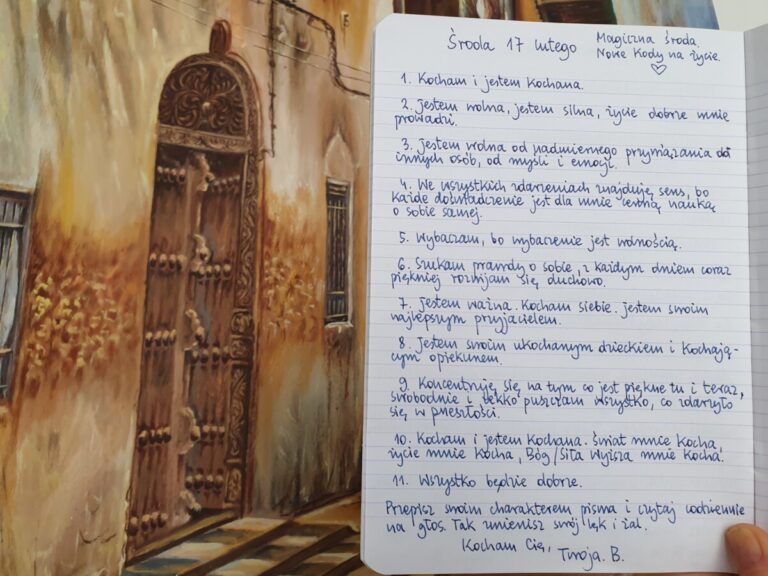 Środa 17 lutego
Magiczna środa.
Nowe Kody na życie.
1. Kocham i jestem Kochana.
2. Jestem wolna, jestem silna, życie dobrze mnie
prowadzi.
3. Jestem wolna od nadmiernego przywiązania do
innych osób, od myśli i emocji.
4. We wszystkich zdarzeniach znajduję sens, bo
każde doświadczenie jest dla mnie cenną nauką
o sobie samej.
5. Wybaczam, bo wybaczenie jest wolnością.
6. Szukam prawdy o sobie, z każdym dniem coraz
piękniej rozwijam się duchowo.
7. Jestem ważna. Kocham siebie. Jestem swoim
najlepszym przyjacielem.
8. Jestem swoim ukochanym dzieckiem i Kochają-
cym opiekunem.
9. Koncentruję się na tym co jest piękne tu i teraz,
swobodnie i lekko puszczam wszystko, co zdarzyło
się w przeszłości.
10. Kocham i jestem Kochana. Świat mnie Kocha,
życie mnie Kocha, Bóg/Siła Wyższa mnie Kocha.
11. Wszystko będzie dobrze.
Przepisz swoim charakterem pisma i czytaj codziennie
na głos. Tak zmienisz swój lęk i żal.
Kocham Cię, Twoja B.